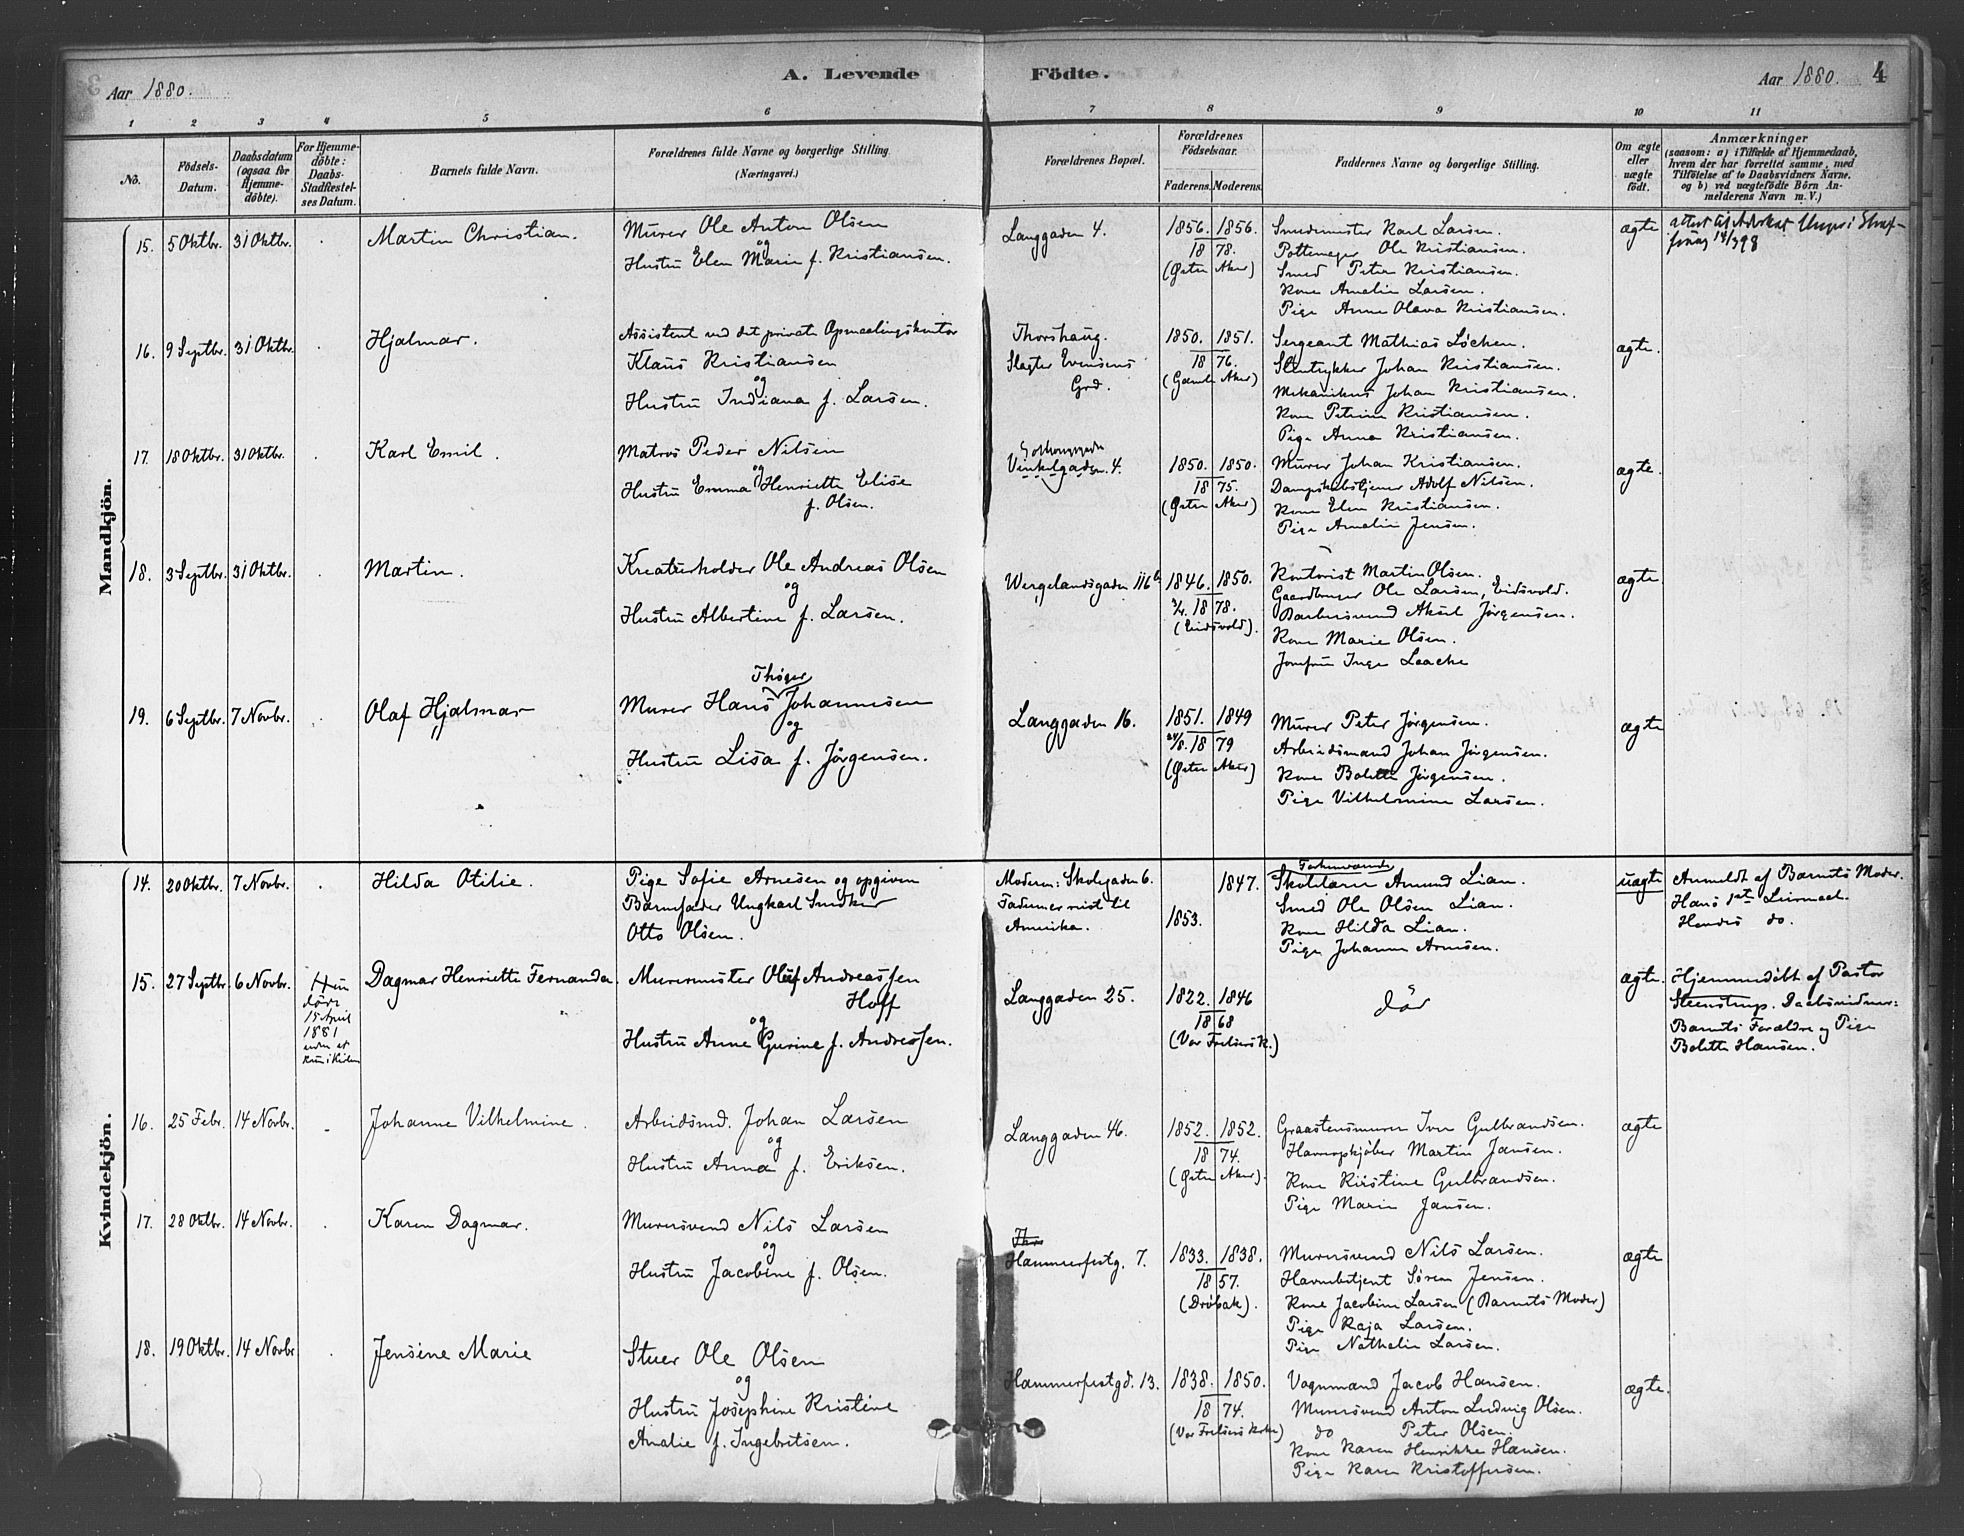 Aar 1880.
A. Levende Födte.
Aar 1880. 4
1 2 3 4 5 6 7 8 9 10 11
No.
Födsels-Datum.
Daabsdatum (ogsaa for Hjemme-döbte).
For Hjemme-döbte: Daabs-Stadfæstel-ses Datum.
Barnets fulde Navn.
Forældrenes fulde Navne og borgerlige Stilling. (Næringsvei.)
Forældrenes Bopæl.
Forældrenes Födselsaar.
Faderens. Moderens.
Faddernes Navne og borgerlige Stilling.
Om ægte eller uægte födt.
Anmærkninger
(saasom: a) i Tilfælde af Hjemmedaab,
hvem der har forrettet samme, med
Tilföielse af to Daabsvidners Navne,
og b) ved uægtefödte Börn An-
melderens Navn m. V.)
Mandkjön.
15. 5 Oktbr. 31 Oktbr. Martin Christian.
Murer Ole Anton Olsen
og
Hustru Elen Marie f. Kristiansen.
Langgaden 4.
1856. 1856.
18 78.
(Østre Aker)
Smedemester Karl Larsen.
Pottemager Ole Kristiansen.
Smed Peter Kristiansen.
Kone Amalie Larsen.
Pige Anne Olava Kristiansen.
ægte
16. 9 Septbr. 31 Oktbr. Hjalmar.
Assistent ved det private Opmaalingskontor
Klaus Kristiansen
og
Hustru Indiana f. Larsen.
Thorshaug.
Slagter Evensens
Grd.
1850. 1851.
18 76.
(Gamle Aker)
Sergeant Mathias Løchen.
Stentrykker Johan Kristiansen.
Mekanikus Johan Kristiansen.
Kone Petrine Kristiansen.
Pige Anna Kristiansen.
ægte.
17. 18 Oktbr. 31 Oktbr. Karl Emil.
Matros Peder Nilsen
og
Hustru Emma Henriette Elise
f. Olsen.
Vinkelgaden 4.
1850. 1850.
18 75.
(Østre Aker)
Murer Johan Kristiansen.
Dampskibstjener Adolf Nilsen.
Kone Elen Kristiansen.
Pige Amalie Jensen.
ægte.
18. 3 Septbr. 31 Oktbr. Martin.
Kreaturholder Ole Andreas Olsen
og
Hustru Albertine f. Larsen.
Wergelandsgaden 116b
1846. 1850.
18 78.
(Eidsvold).
Kontorist Martin Olsen.
Gaardbruger Ole Larsen, Eidsvold.
Barbersvend Aksel Jørgensen.
Kone Marie Olsen.
Jomfru Inga Laache
ægte
19. 6 Septbr. 7 Novbr. Olaf Hjalmar
Thøger
Murer Hans Johannesen
og
Hustru Lisa f. Jørgensen.
Langgaden 16.
1851. 1849
24/8. 18 79
(Østre Aker)
Murer Peter Jørgensen.
Arbeidsmand Johan Jørgensen.
Kone Bolette Jørgensen.
Pige Vilhelmine Larsen.
ægte
Kvindekjön.
14. 20 Oktbr. 7 Novbr. Hilda Otilie.
Pige Sofie Arnesen og opgiven
Barnefader Ungkarl Snedker
Otto Olsen.
Moderen: Skolegaden 6.
Faderen reist til
Amerika.
1847.
1853.
Forhenværende
Skolelærer Amund Lian.
Smed Ole Olsen Lian.
Kone Hilda Lian.
Pige Johanne Arnesen.
uægte
Anmeldt af Barnets Moder.
Hans 1ste Leiermaal.
Hendes do.
15. 27 Septbr. 6 Novbr.
Hun
døde
15 April
1881
uden at
Dagmar Henriette Fernanda.
Murermester Oluf Andreassen
Hoff
og
Hustru Anne Gurine f. Andreassen.
Langgaden 25.
1822. 1846
18 68
(Vor Frelsers K.)
død
ægte.
Hjemmedøbt af Pastor
Steenstrup. Daabsvidner:
Barnets Forældre og Pige
Bolette Hansen.
16. 25 Febr. 14 Novbr. Johanne Vilhelmine.
Arbeidsmd. Johan Larsen
og
Hustru Anna f. Eriksen.
Langgaden 46.
1852. 1852.
18 74.
(Østre Aker).
Graastensmurer Iver Gulbrandsen.
Havreopkjøber Martin Jansen.
Kone Kristine Gulbrandsen.
Pige Marie Jansen.
ægte
17. 28 Oktbr. 14 Novbr. Karen Dagmar.
Murersvend Nils Larsen
og
Hustru Jacobine f. Olsen.
Hammerfestg. 7.
1833. 1838.
18 57.
(Drøbak).
Murersvend Nils Larsen.
Havnebetjent Søren Jensen.
Kone Jacobine Larsen (Barnets Moder)
Pige Kaja Larsen.
Pige Nathalie Larsen.
ægte
18. 19 Oktbr. 14 Novbr. Jensine Marie
Stuer Ole Olsen
og
Hustru Josephine Kristine
Amalie f. Ingebritsen.
Hammerfestgd. 13.
1838. 1850.
18 74.
(Vor Frelsers Kirke)
Vognmand Jacob Hansen.
Murersvend Anton Ludvig Olsen.
do Peter Olsen.
Kone Karen Henrikke Hansen.
Pige Karen Kristoffersen.
ægte.